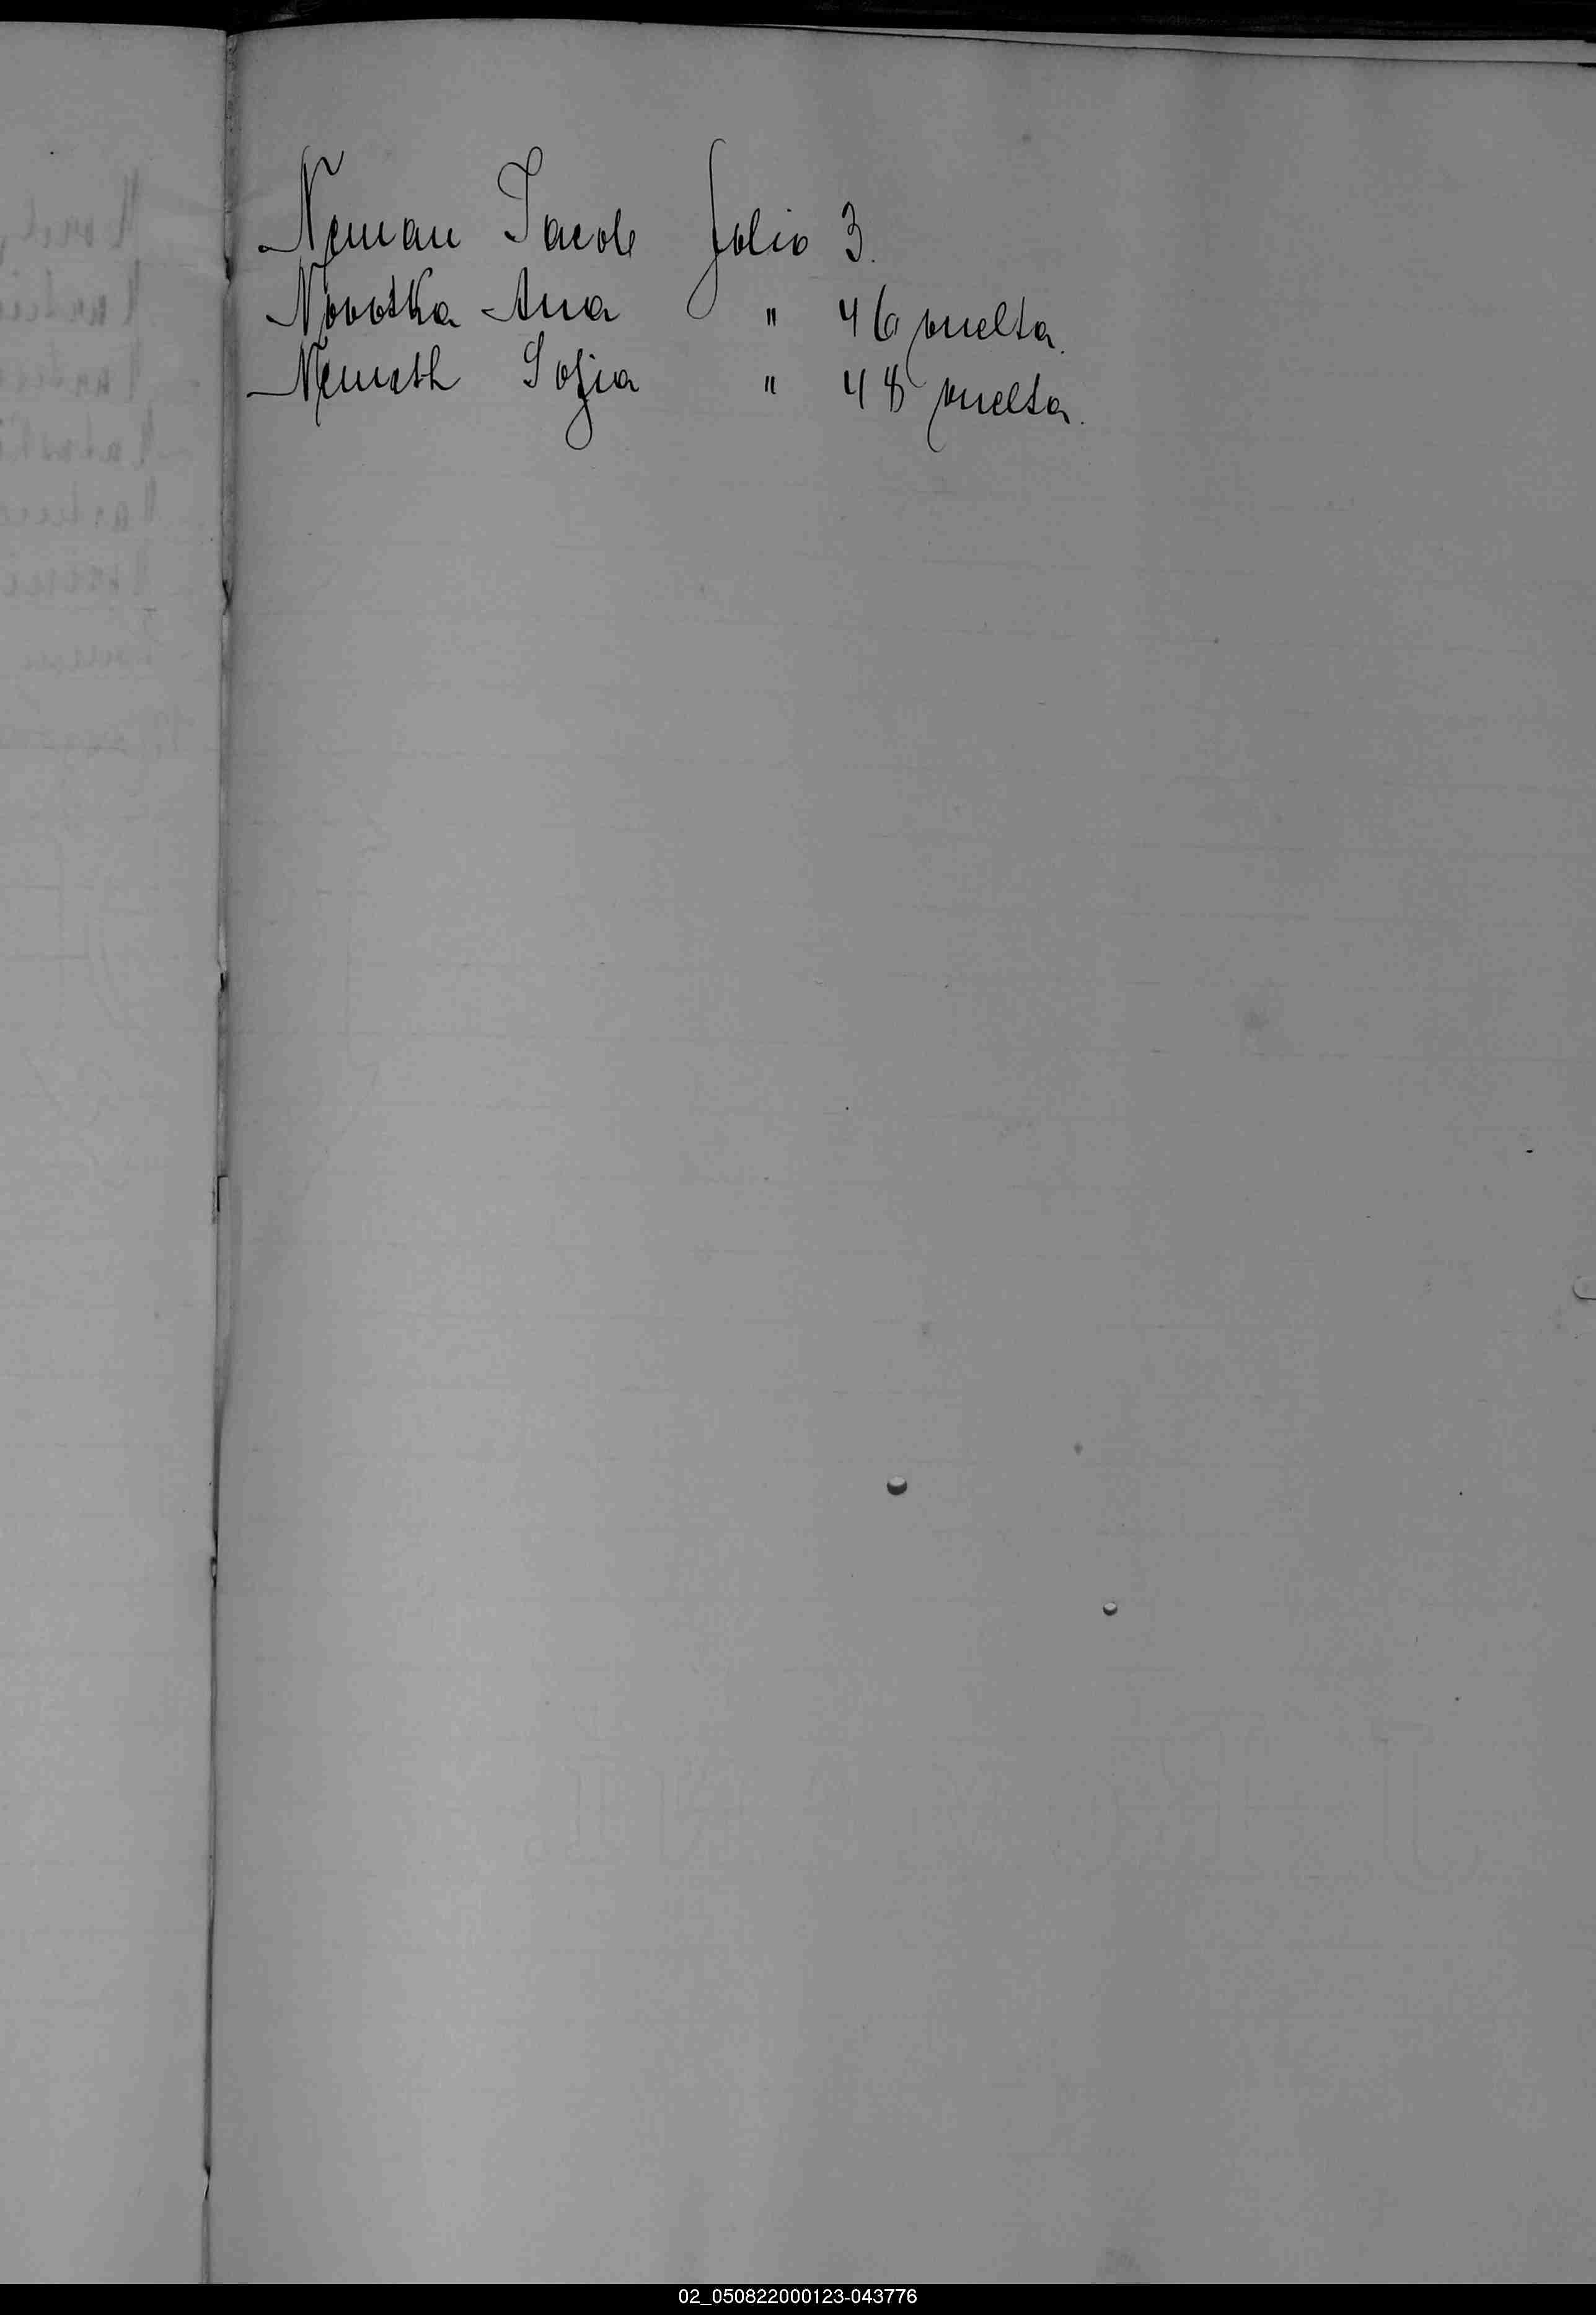 Neman Jacob folio 3.
Novotka Ana " 46 vuelta.
Nemeth Sofia " 48 vuelta.
02_050822000123-043776